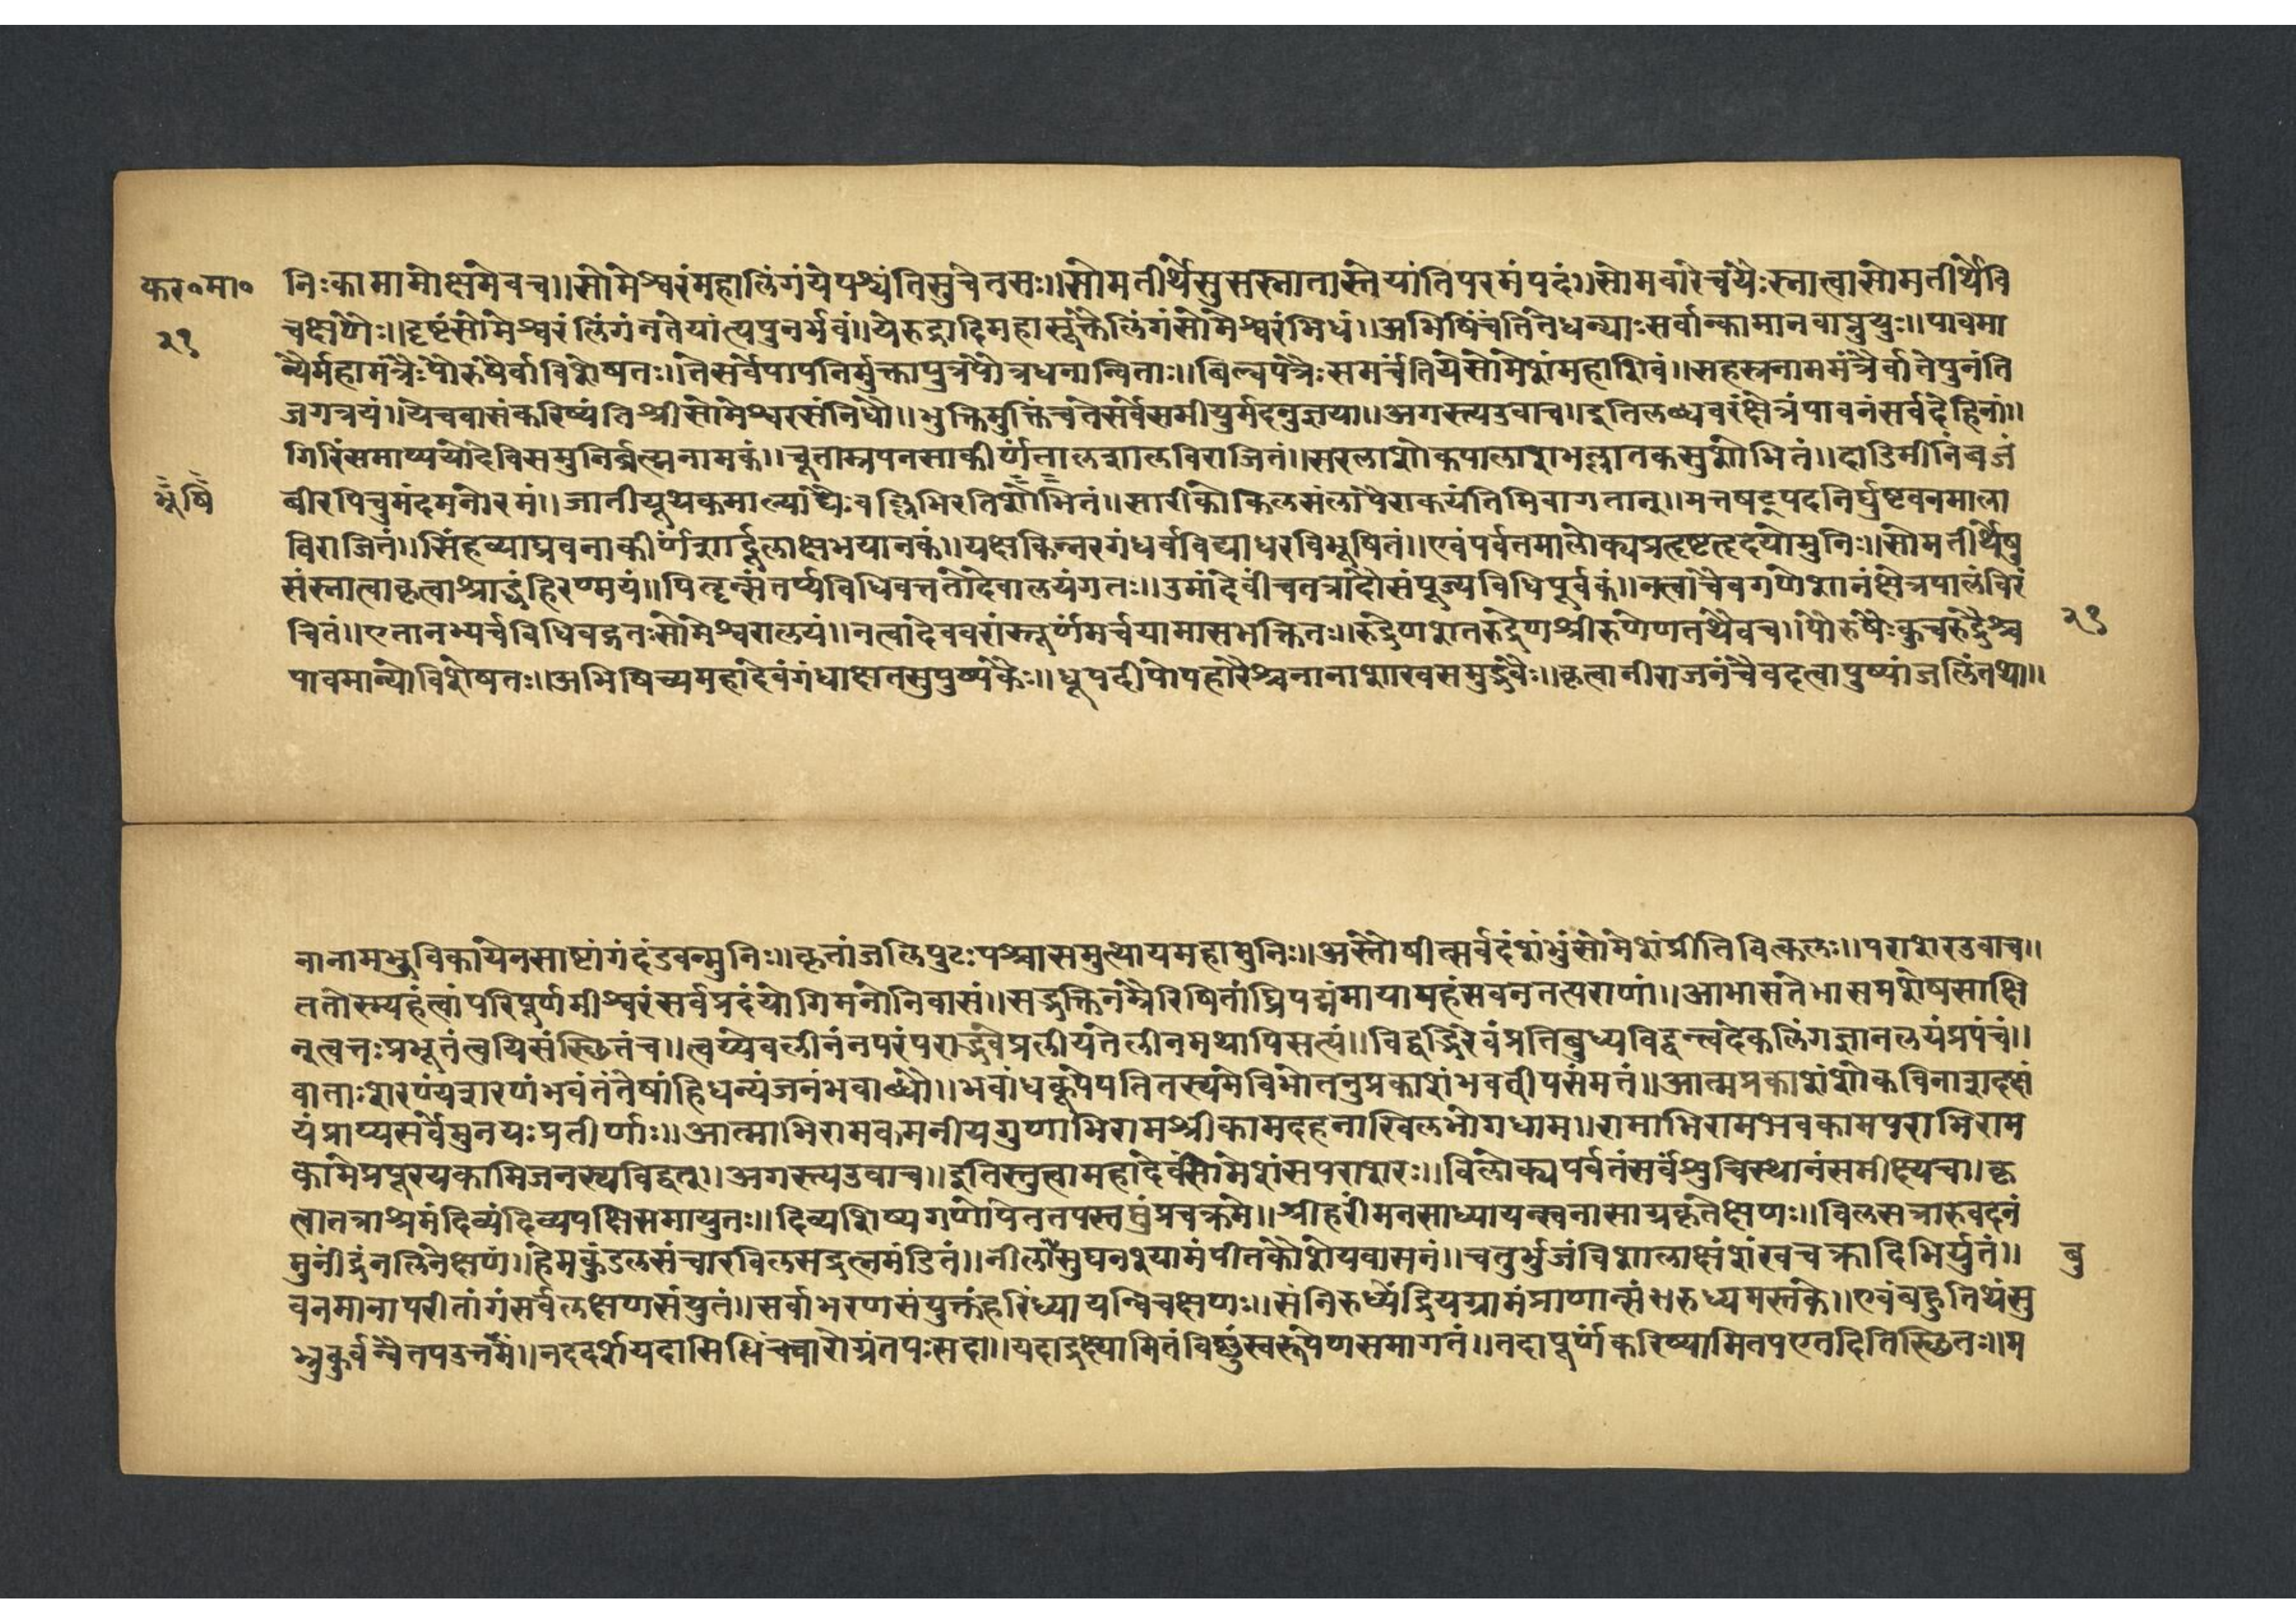 कर॰मा॰
२१
निःकामामोक्षमेवच॥सोमेश्वरंमहालिंगंयेपश्यंतिसुचेतसः॥सोमतीर्थेसुसस्नातास्तेयांतिपरमंपदं॥सोमवारेचयेःस्नात्वासोमतीर्थेवि
चक्षणेः॥दृष्टंसोमेश्वरंलिंगंनतेयांत्यपुनर्भवं॥येरुद्रादिमहासूक्तैर्लिंगंसोमेश्वरंभिधं॥अभिषिंचंतितेधन्याःसर्वान्कामानवाप्नुयुः॥पावमा
न्यैर्महामंत्रैःपौरुषैर्वाविशेषतः॥तेसर्वेपापनिर्मुक्तापुत्रपौत्रधनान्विताः॥बिल्वपत्रैःसमर्चंतियेसोमेशंमहाशिवं॥सहस्रनाममंत्रैर्वातेपुनंति
जगत्रयं॥येचवासंकरिष्यंतिश्रीसोमेश्वरसंनिधौ॥भुक्तिमुक्तिंचतेसर्वेसमीयुर्मदनुज्ञया॥अगस्त्यउवाच॥इतिलब्धवरंक्षेत्रंपावनंसर्वदेहिनां॥
गिरिंसमाप्ययोदेविसमुनिर्ब्रह्मनामकं॥चूताम्रपनसाकीर्णंतालशालविराजितं॥सरलाशोकपालाशभल्लातकसुशोभितं॥दाडिमीनिंबजं
भूषि
बीरपिचुमंदमनोरमं॥जातीयूथकमाल्याद्यैःवल्लिभिरतिशोभितं॥सारीकोकिलसंलापैराकयंतिमिवागतान्॥मत्तषट्पदनिर्घुष्टवनमाला
विराजितं॥सिंहव्याघ्रवनाकीर्णंशार्दूलाक्षभयानकं॥यक्षकिन्नरगंधर्वविद्याधरविभूषितं॥एवंपर्वतमालोक्यप्रहृष्टहृदयोमुनिः॥सोमतीर्थेषु
संस्नात्वाकृत्वाश्राद्धंहिरण्मयं॥पितॄन्संतर्प्यविधिवत्ततोदेवालयंगतः॥उमांदेवींचतत्रादौसंपूज्यविधिपूर्वकं॥नत्वाचैवगणेशानंक्षेत्रपालंविरं
२१
चितं॥एतानभ्यर्चविधिवद्गतःसोमेश्वरालयं॥नत्वादेववरांस्तूर्णमर्चयामासभक्तितः॥रुद्रेणशतरुद्रेणश्रीरुणेणतथैवच॥पौरुषैःकुचरुद्रैश्च
पावमान्योविशेषतः॥अभिषिच्यमहादेवंगंधाक्षतसुपुष्पकैः॥धूपदीपोपहारैश्चनानाशाखसमुद्भवैः॥कृत्वानीराजनंचैवदत्वापुष्पांजलिंतथा॥
नानामभुविकायेनसाष्टांगंदंडवन्मुनिः॥कृतांजलिपुटःपश्चासमुत्थायमहामुनिः॥अस्तौषीत्सर्वदंशंभुंसोमेशंप्रीतिविह्वलः॥पराशरउवाच॥
ततोस्म्यहंत्वांपरिपूर्णमीश्वरंसर्वप्रदंयोगिमनोनिवासं॥सद्भक्तिनम्रैरिषितांघ्रिपद्मंमायामहंसवनतत्पराणां॥आभासतेभासमशेषसाक्षि
नृत्वत्तःप्रभूतंत्वयिसंस्थितंच॥त्वय्येवलीनंनपरंपराद्भवेप्रलीयंतेलीनमथापिसत्यं॥विद्वद्भिरेवंप्रतिबुध्यविद्वन्त्वदेकलिंगज्ञानलयंप्रपंचं॥
वाताःशरण्यंशरणंभवंतंतेषांहिधन्यंजनंभवाब्धौ॥भवांधकूपेपतितस्यमेविभोतनुप्रकाशंभववीपसंमतं॥आत्मप्रकाशंशोकविनाशदक्षं
यंप्राप्यसर्वेमुनयःप्रतीर्णाः॥आत्माभिरामकमनीयगुणाभिरामश्रीकामदहनाखिलभोगधाम॥रामाभिरामभवकामपराभिराम
कामेप्रपूरयकामिजनस्यविद्वत्॥अगस्त्यउवाच॥इतिस्तुत्वामहादेवंसोमेशंसपराशरः॥विलोक्यपर्वतंसर्वंशुचिस्थानंसमीक्ष्यचा॥कृ
त्वातत्राश्रमंदिव्यंदिव्यपक्षिसमायुतः॥दिव्यशिष्यगणोपेतस्तपस्तप्तुंप्रचक्रमे॥श्रीहरीमनसाध्यायन्स्वनासाग्रकृतेक्षणः॥विलसच्चारुवदनं
मुनींद्रंनलिनेक्षणं॥हेमकुंडलसंचारविलसद्रत्नमंडितं॥नीलांसुघनश्यामंपीतकौशेयवाससनं॥चतुर्भुजंविशालाक्षंशंखचक्रादिभिर्युतं॥
बु
वनमानापरीतांगंसर्वलक्षणसंयुतं॥सर्वाभरणसंयुक्तंहरिंध्यायन्विचक्षणः॥संनिरुध्येंद्रियग्रामंप्राणान्संधरुध्यमस्तके॥एवंबहुतिथेसु
भ्रुकुर्वन्वैतपउत्तमं॥नददर्शयदासिद्धिंचचारोग्रंतपःसदा॥यदाद्रक्ष्यामितंविष्णुंस्वरूपेणसमागतं॥तदापूर्णंकरिष्यामितपएतदितिस्थितः॥म